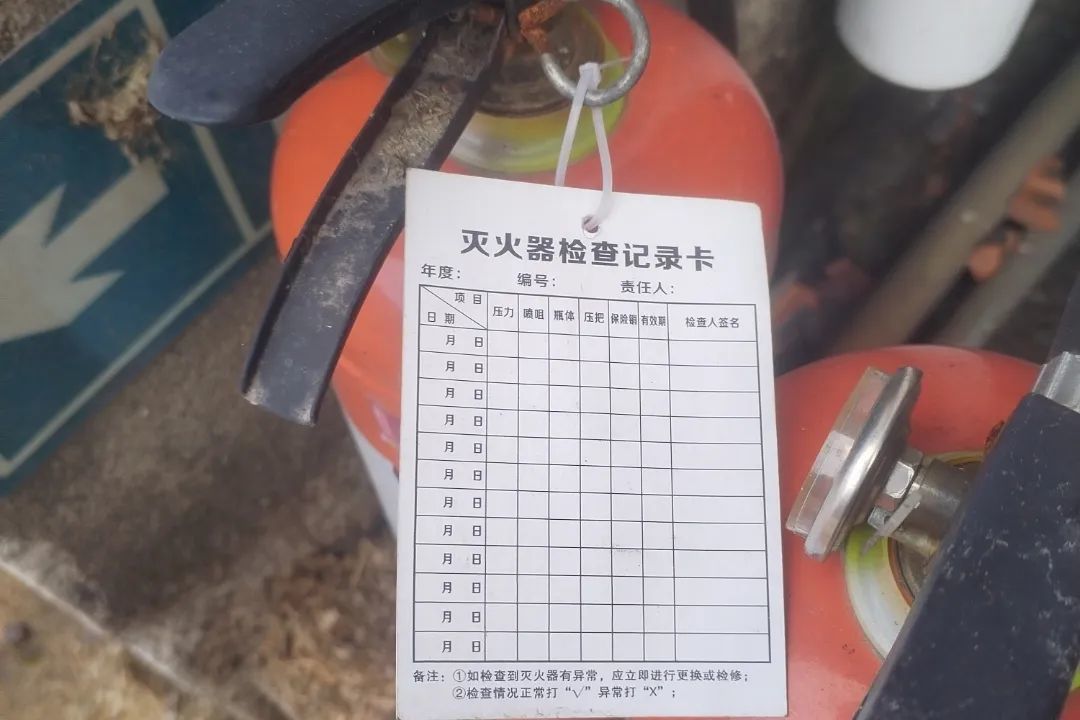 灭火器检查记录卡
年度： 编号： 责任人：
项目 压力 喷咀 瓶体 压把 保险销 有效期 检查人签名
日期
月 日
月 日
月 日
月 日
月 日
月 日
月 日
月 日
月 日
月 日
月 日
月 日
备注：①如检查到灭火器有异常，应立即进行更换或检修；
②检查情况正常打“√”异常打“X”；